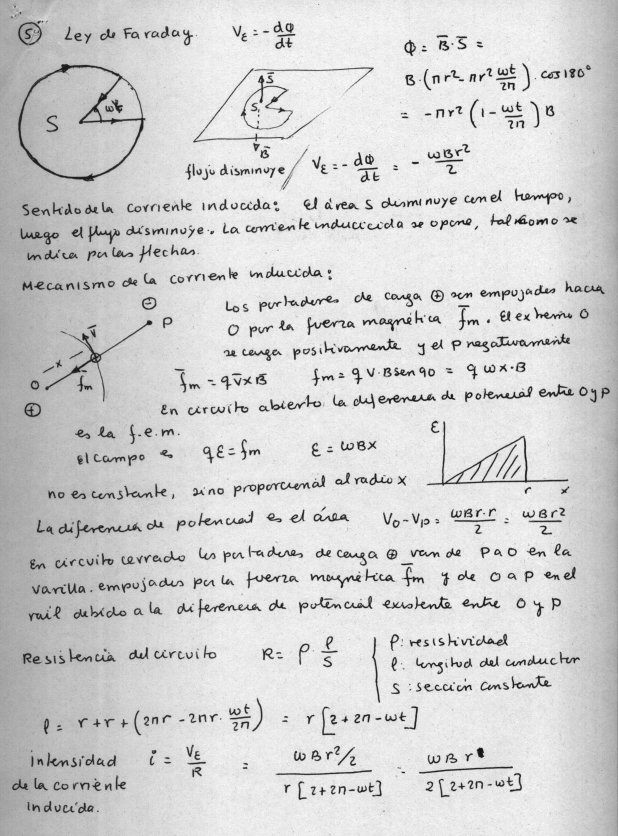 5º Ley de Faraday. V_ε = - dΦ/dt
Φ = B̅·S̅ =
B·(πr² - πr² ωt/2π)·cos180°
= -πr² (1 - ωt/2π) B
S ωt
S̅ S B̅
flujo disminuye V_ε = - dΦ/dt = - ωBr²/2
Sentido de la corriente inducida: el área S disminuye con el tiempo,
luego el flujo disminuye. La corriente induccicida se opone, tal como se
indica por las flechas.
Mecanismo de la corriente inducida:
Los portadores de carga ⊕ son empujados hacia
O por la fuerza magnética f̅m. El extremo O
se carga positivamente y el P negativamente
⊖ P V̅ x f̅m O ⊕
f̅m = q v̅ x B̅ fm = q V·B sen 90 = q ωx·B
En circuito abierto la diferencia de potencial entre O y P
es la f.e.m.
el campo es qƐ = fm Ɛ = ωBx
Ɛ r x
no es constante, sino proporcional al radio x
La diferencia de potencial es el área V₀ - Vp = ωBr·r/2 = ωBr²/2
En circuito cerrado los portadores de carga ⊕ van de P a O en la
varilla. empujados por la fuerza magnética f̅m y de O a P en el
rail debido a la diferencia de potencial existente entre O y P
Resistencia del circuito R = ρ ℓ/S
ρ: resistividad
ℓ: longitud del conductor
S: sección constante
ℓ = r + r + (2πr - 2πr· ωt/2π) = r [2 + 2π - ωt]
intensidad de la corriente inducida. i = V_ε/R = (ωBr²/2) / (r [2 + 2π - ωt]) = ωBr / (2 [2 + 2π - ωt])